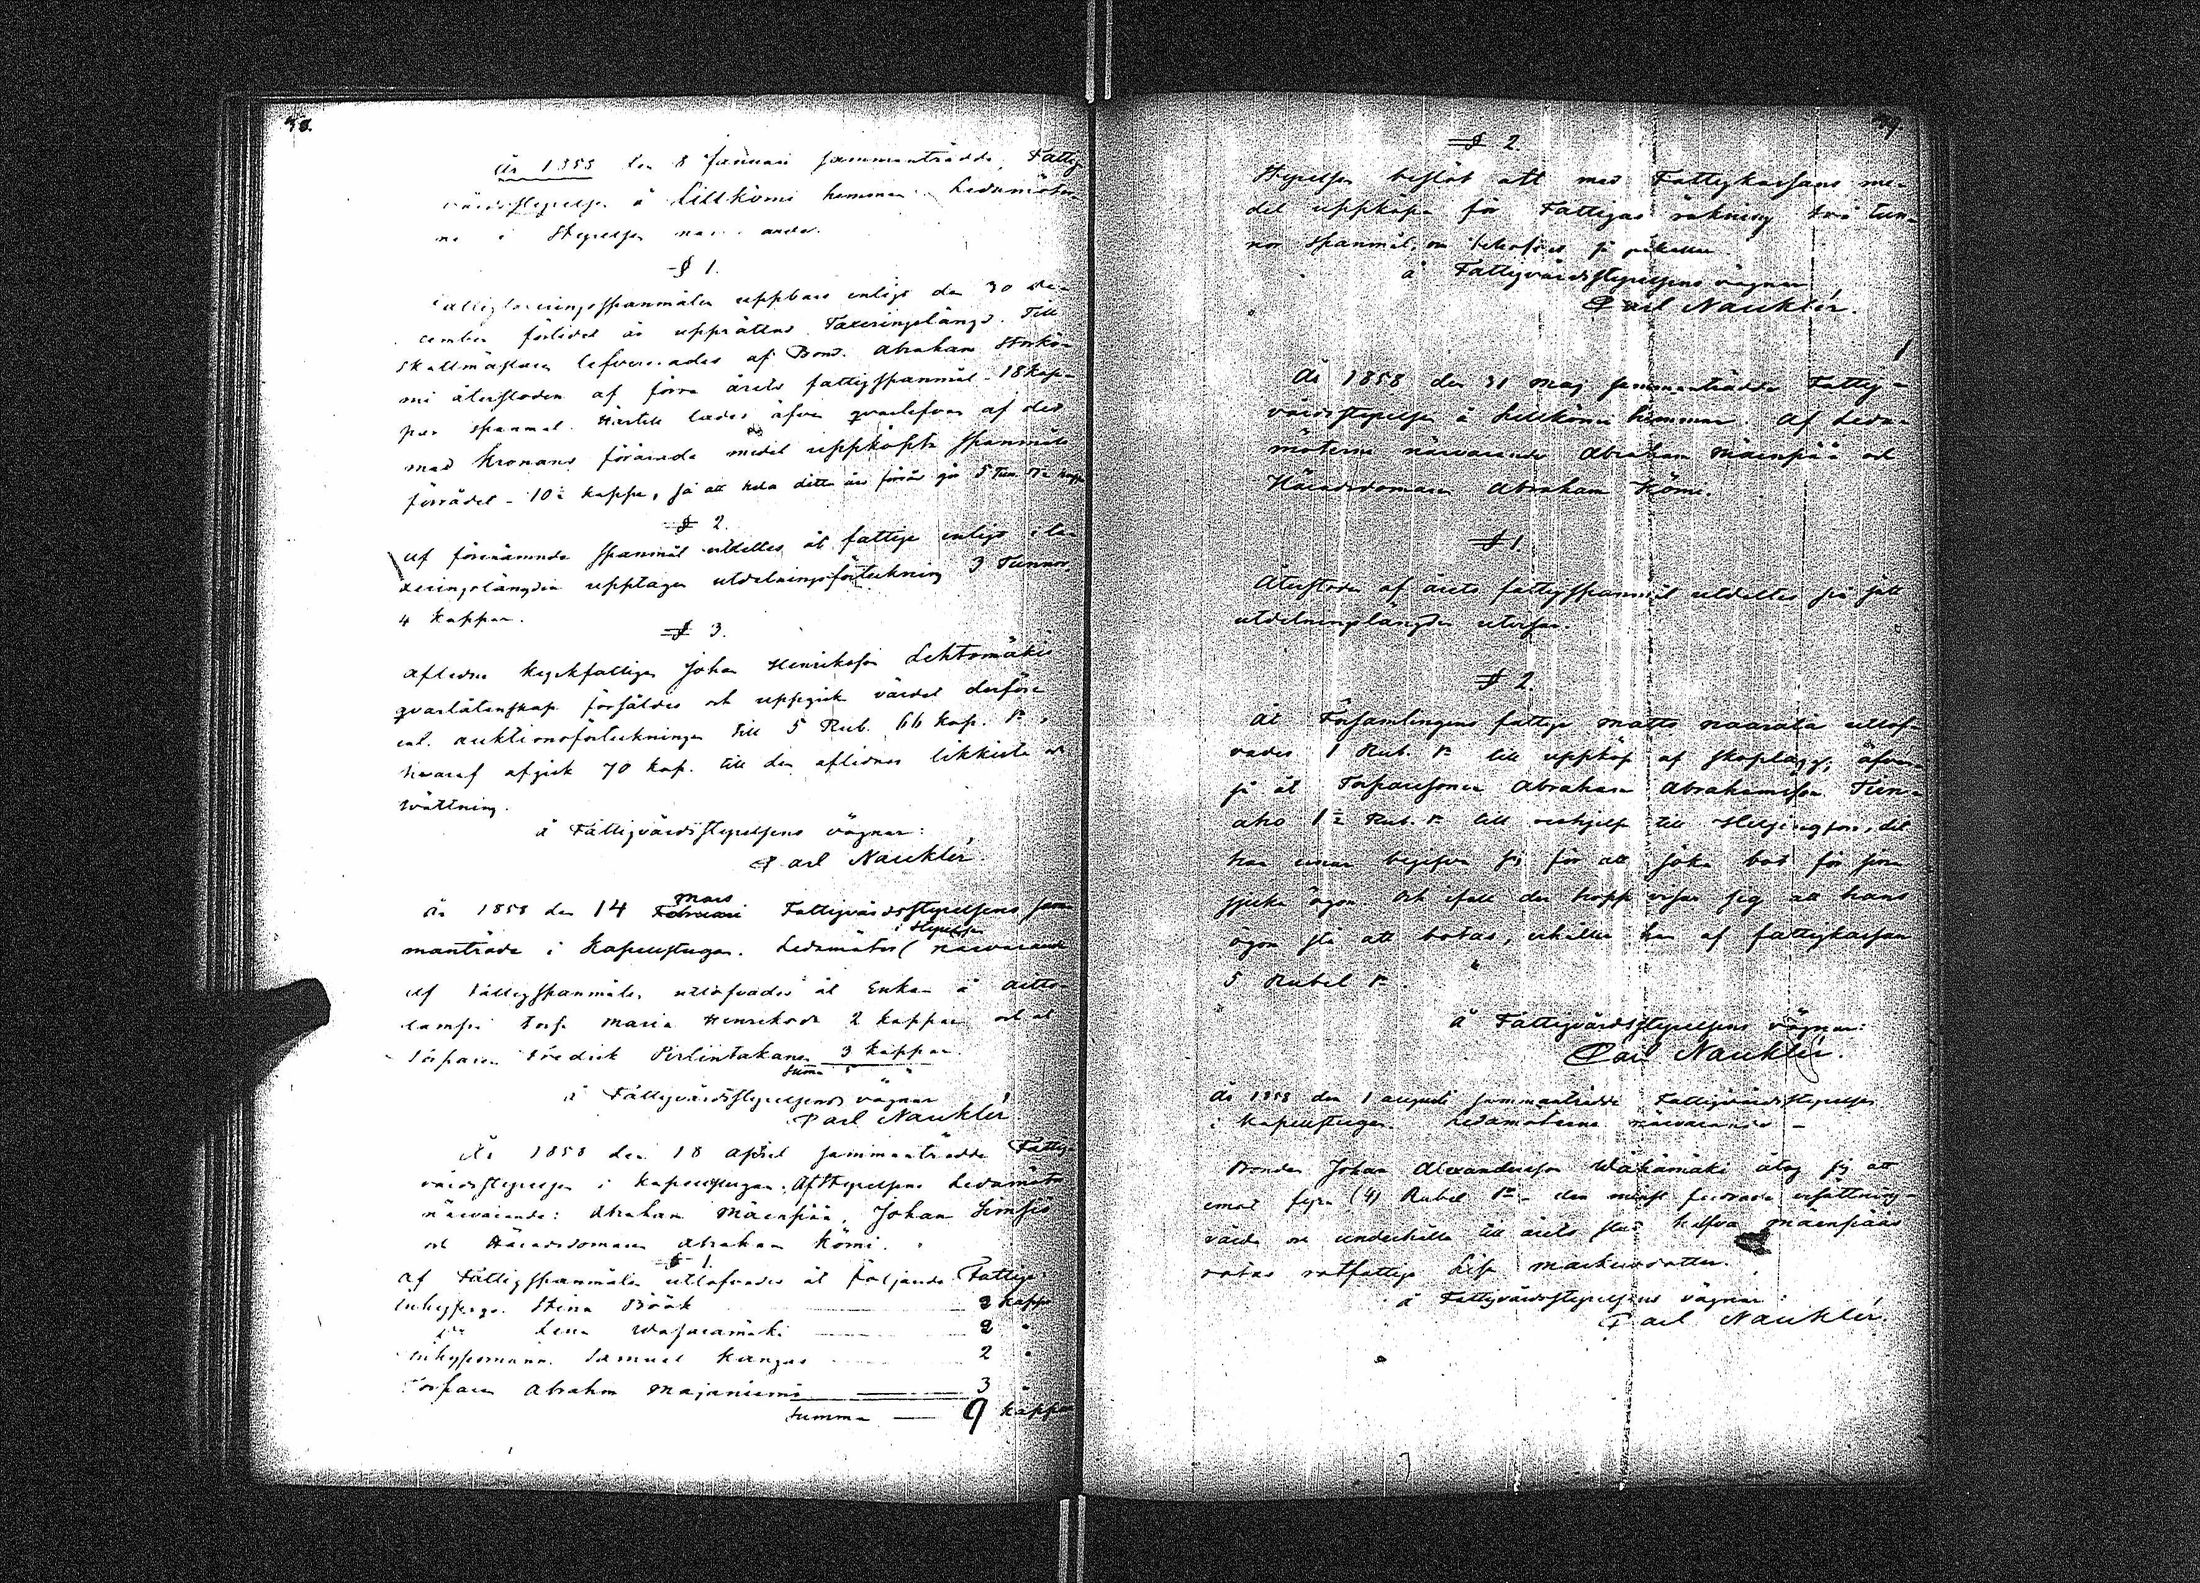 78.
År 1858 den 8 Januari sammanträdde Fattig
vårdsstyrelsen å Lillkömi hemman. Ledamöter
ne i Styrelsen
§ 1.
Fattigtaxeringsspanmålen uppbars enligt den 30 De-
cember förlidet år upprättad Taxeringslängd. Till
Skallmästaren lefvererades af Bond. Abraham Storkö-
mi återstoden af förra årets fattigspanmål - 18 kap-
par spanmål. Härtill lades äfven qvarlefvan af det
med Kronans förärade medel uppköpta spanmåls
förrådet - 10½ kappe, så att hela detta års förråd
§ 2.
Af förenämnde spanmål utdeltes åt fattige enligt i ta-
xeringslängden upptagen utdelningsförteckning 3 Tunnor
4 kappar.
§ 3.
Aflidne Rysckfattigen Johan Henriksson Lehtomäkis
qvarlåtenskap försåldes och uppgick värdet derföre
enl. auktionsförteckningen till 5 Rub. 66 kop. Sr,
hvaraf afgick 70 kop. till den aflidnes likkista och
twättning.
å Fattigvårdsstyrelsens vägnar:
Carl Nauklér.
År 1858 den 14 Februari Mars Fattigvårdsstyrelsens sam
manträde i Kapellstugan. Ledamöter (i Styrelsen närvarande
Af Fattigspanmålen utlofvades åt Enkan å Aitto-
lampi torp Maria Henriksdr 2 kappar och åt
Torparen Fredrik Pirlintakanen 3 kappar.
Summa 5 "
å Fattigvårdsstyrelsens vägnar
Carl Nauklér.
År 1858 den 18 April sammanträdde Fattig-
vårdsstyrelsen i Kapellstugan. Af Styrelsens Ledamöter
närvarande: Abraham Mäenpää, Johan Simsiö
och Häradsdomaren Abraham Kömi.
§ 1.
Af Fattigspanmålen utlofvades åt följande Fattige:
Inhyseqv. Stina Böök 2 kappr
do Lena Wasaramäki 2 "
Inhysesmann. Samuel Kangas 2 "
Torparen Abrahm Majaniemi 3 "
Summa 9 kappar
79
§ 2.
Styrelsen beslöt att med Fattigkassans me-
del uppköpa för Fattigas räkning två tun-
nor spanmål, om behofvet så påkallar.
å Fattigvårdsstyrelsens vägnar
Carl Nauklér.
År 1858 den 31 Maj sammanträdde Fattig-
vårdsstyrelsen å Lillkömi hemman. Af Leda-
möterne närvarande Abraham Mäenpää och
Häradsdomaren Abraham Kömi.
§ 1.
Återstoden af årets fattigspanmål utdeltes på sätt
utdelningslängden utvisar.
§ 2.
Åt Församlingens fattige Matts Naarala utlof-
vades 1 Rub. Sr till uppköp af skoplagg, äfven
så åt Torparesonen Abraham Abrahamsson Tun-
aho 1½ Rub. Sr till reshjelp till Helsingfors, dit
han ernar begifva sig för att söka bot för sina
sjuka ögon. Och ifall det hopp visar sig att hans
ögon stå att botas, erhåller han af fattigkassan
5 Rubel Sr.
Å Fattigvårdsstyrelsens vägnar:
Carl Nauklér.
År 1858 den 1 Augusti sammanträdde Fattigvårdsstyrelsen
i Kapellstugan. Ledamöterne närvarande -
Bonden Johan Alexandersson Wähämäki åtog sig att
emot fyra (4) Rubel Sr - den minst fordrade ersättning -
vårda och underhålla till årets slut halfva Mäenpääs
rotas rotfattige Lisa Markusdotter.
å Fattigvårdsstyrelsens vägnar
Carl Nauklér